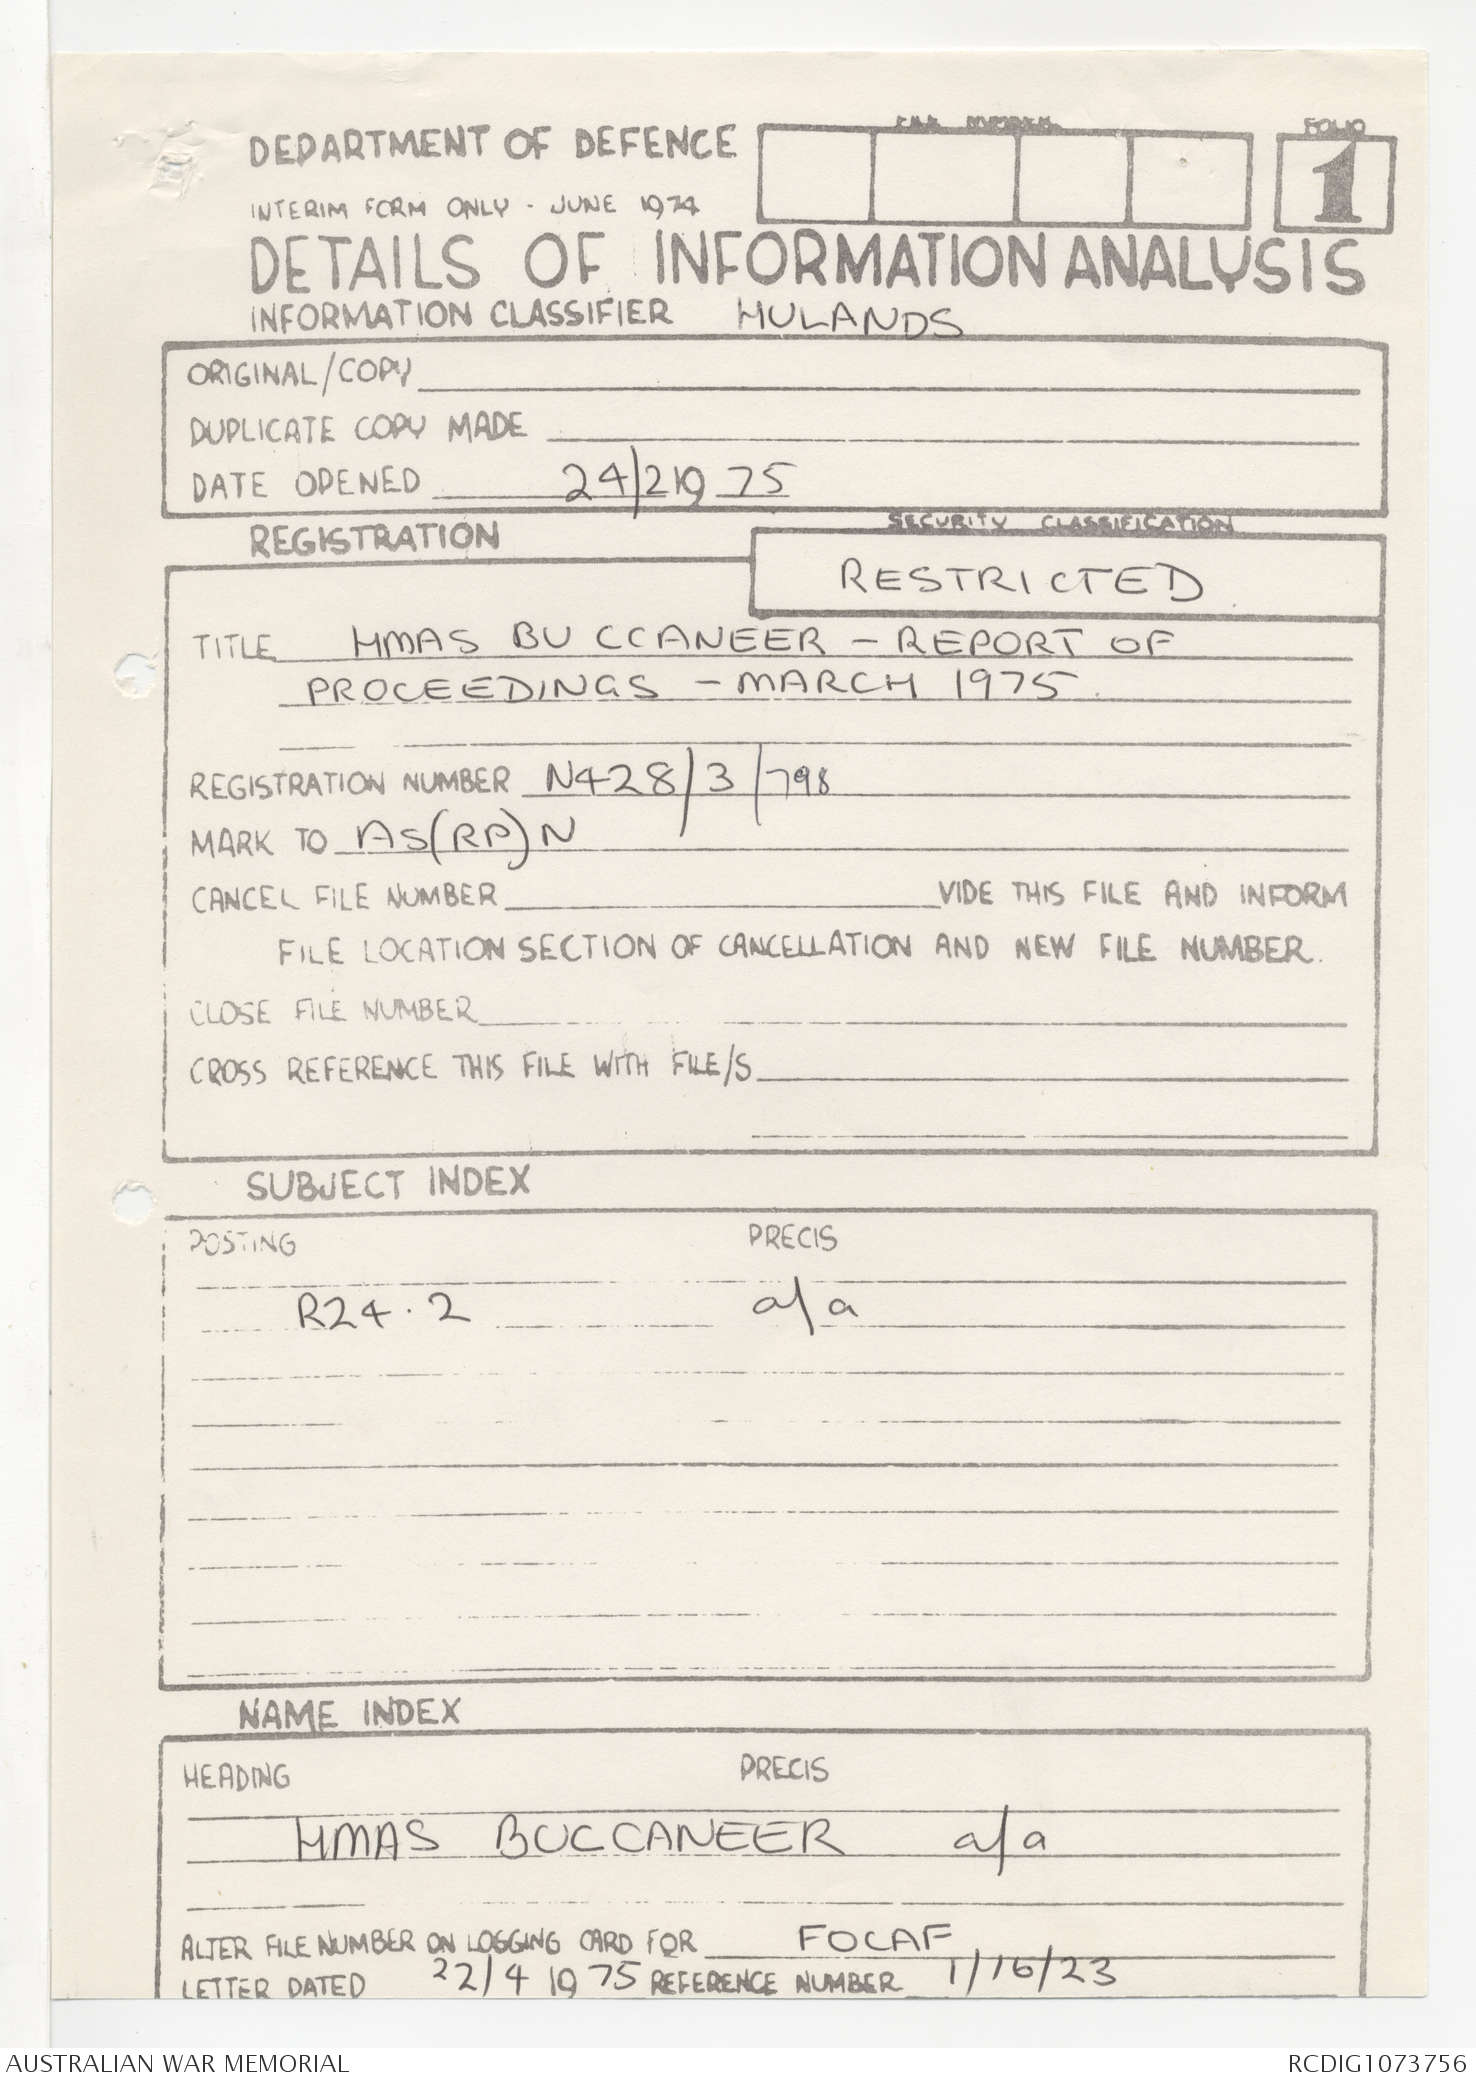 DEPARTMENT OF DEFENCE
FILE NUMBER
FOLIO
1
INTERIM FORM ONLY - JUNE 1974
DETAILS OF INFORMATION ANALYSIS
INFORMATION CLASSIFIER HULANDS
ORIGINAL/COPY
DUPLICATE COPY MADE
DATE OPENED 24/2 19 75
REGISTRATION
SECURITY CLASSIFICATION
RESTRICTED
TITLE HMAS BUCCANEER - REPORT OF
PROCEEDINGS - MARCH 1975.
REGISTRATION NUMBER N428/3/798
MARK TO AS(RP)N
CANCEL FILE NUMBER VIDE THIS FILE AND INFORM
FILE LOCATION SECTION OF CANCELLATION AND NEW FILE NUMBER.
CLOSE FILE NUMBER
CROSS REFERENCE THIS FILE WITH FILE/S
SUBJECT INDEX
POSTING PRECIS
R24.2 a/a
NAME INDEX
HEADING PRECIS
HMAS BUCCANEER a/a
ALTER FILE NUMBER ON LOGGING CARD FOR FOCAF
LETTER DATED 22/4 19 75 REFERENCE NUMBER 1/16/23
AUSTRALIAN WAR MEMORIAL RCDIG1073756